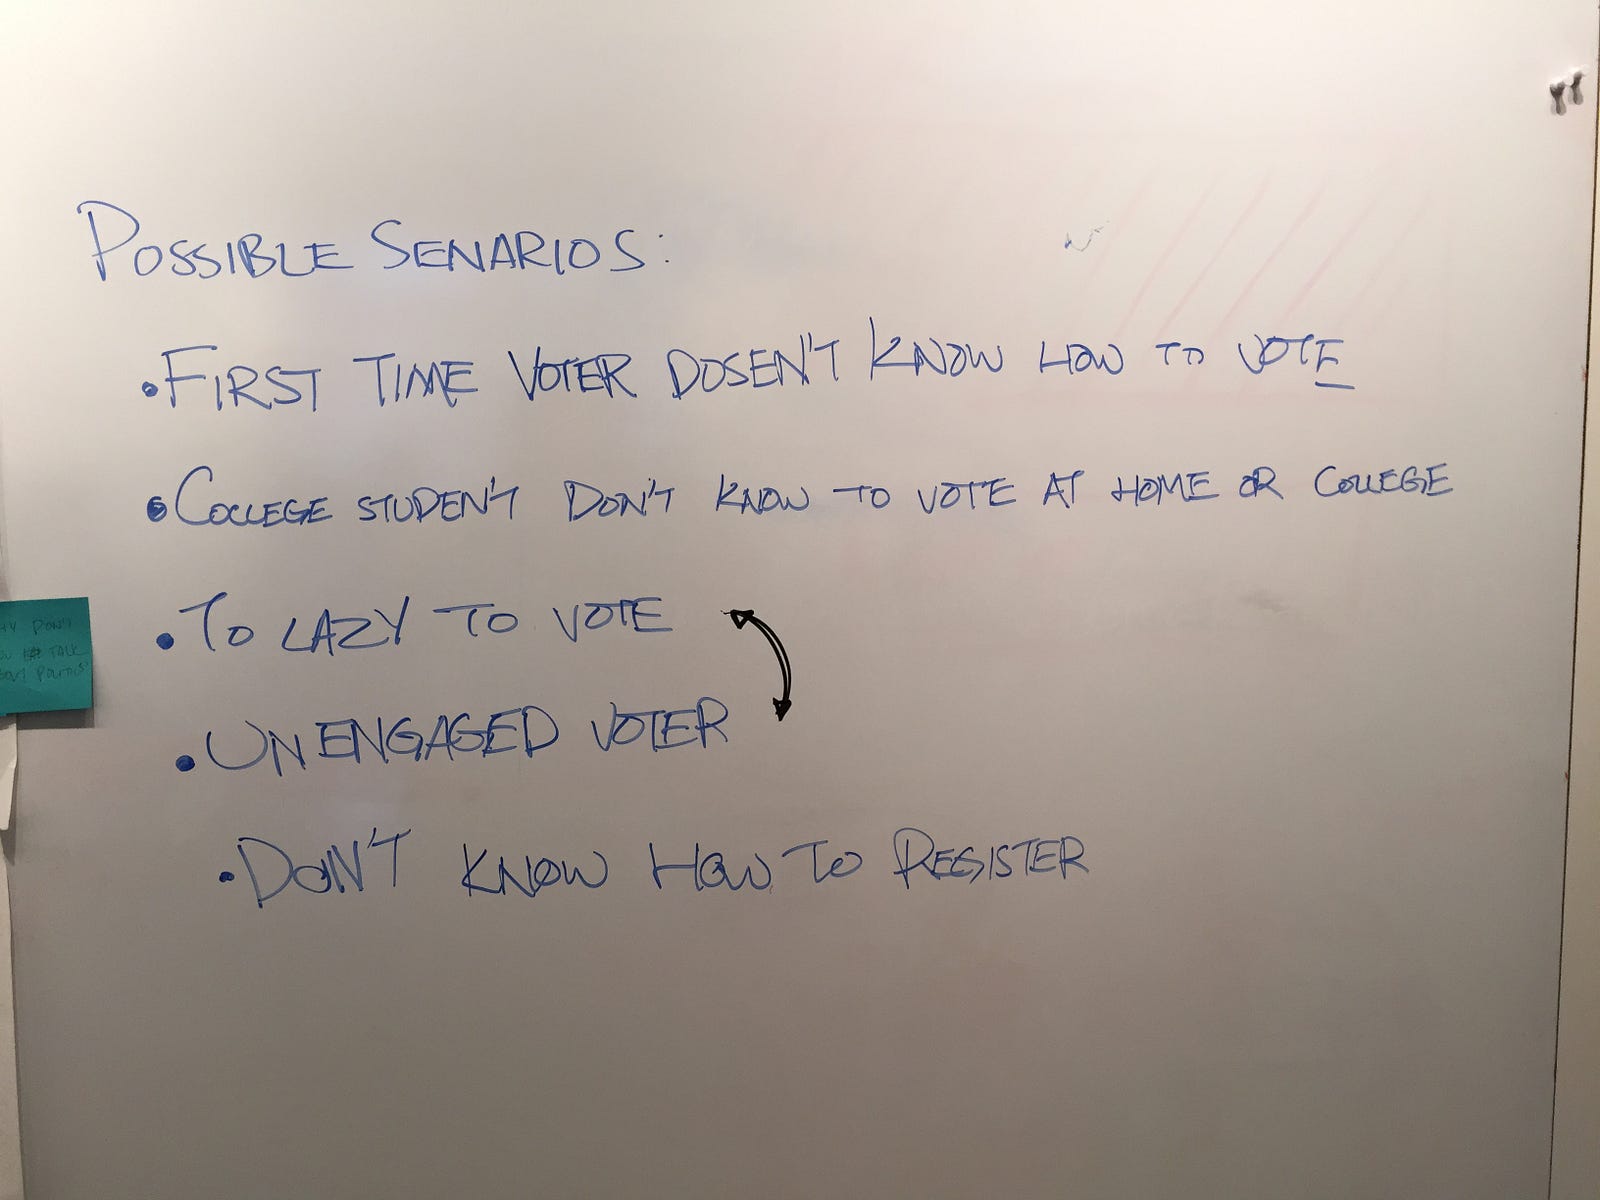 POSSIBLE SENARIOS:
• FIRST TIME VOTER DOSEN'T KNOW HOW TO VOTE
• COLLEGE STUDEN'T DON'T KNOW TO VOTE AT HOME OR COLLEGE
• TO LAZY TO VOTE
• UNENGAGED VOTER
• DON'T KNOW HOW TO REGISTER
DON'T
TALK
POLITICS